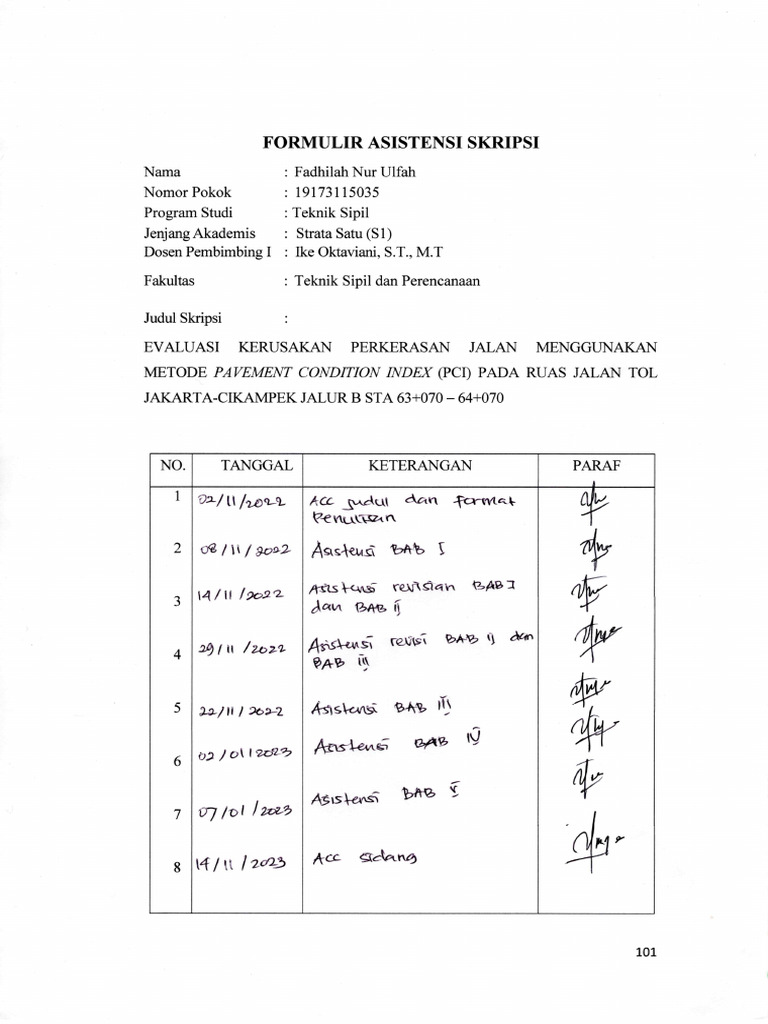 FORMULIR ASISTENSI SKRIPSI
Nama : Fadhilah Nur Ulfah
Nomor Pokok : 19173115035
Program Studi : Teknik Sipil
Jenjang Akademis : Strata Satu (S1)
Dosen Pembimbing I : Ike Oktaviani, S.T., M.T
Fakultas : Teknik Sipil dan Perencanaan
Judul Skripsi :
EVALUASI KERUSAKAN PERKERASAN JALAN MENGGUNAKAN
METODE PAVEMENT CONDITION INDEX (PCI) PADA RUAS JALAN TOL
JAKARTA-CIKAMPEK JALUR B STA 63+070 – 64+070
NO. TANGGAL KETERANGAN PARAF
1 02/11/2022 ACC judul dan format
Penulisan
2 08/11/2022 Asistensi BAB I
3 14/11/2022 Asistensi revisian BAB I
dan BAB II
4 29/11/2022 Asistensi revisi BAB II dan
BAB III
5 22/11/2022 Asistensi BAB III
6 02/01/2023 Asistensi BAB IV
7 07/01/2023 Asistensi BAB V
8 14/11/2023 Acc sidang
101